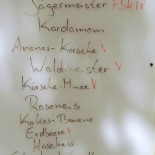 Jägermeister
Kardamom
Ananas-Kirsche
Waldmeister
Kirsche-Minze
Roseneis
Kokos-Banane
Erdbeere
Haselnuss